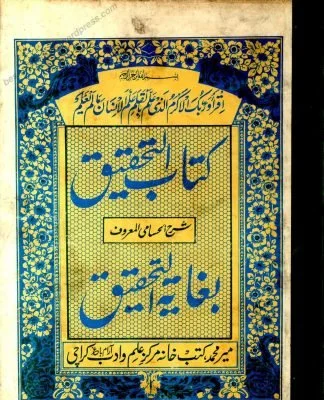 بسم اللہ الرحمن الرحیم
اقرأ وربك الاكرم الذى علم بالقلم علم الانسان مالم يعلم
كتاب التحقيق
شرح الحسامى المعروف
بغاية التحقيق
میر محمد کتب خانہ مرکز علم وادب آرام باغ کراچی